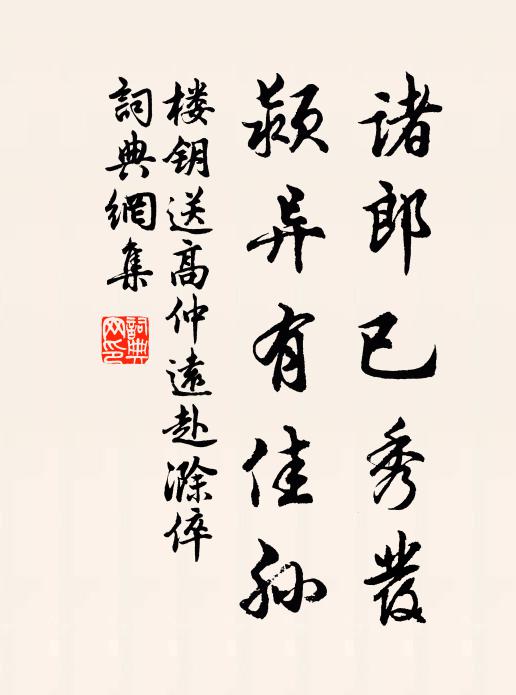 诸郎已秀發
颍异有佳孙
楼钥送高仲遠赴滁倅
詞典網集
詞典网印